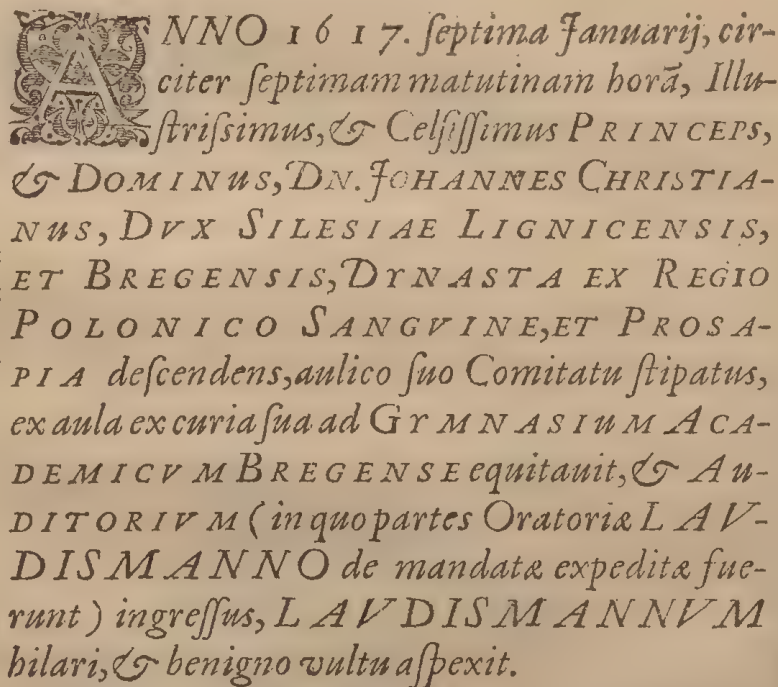 ANNO 1617. ſeptima Januarij, cir-
citer ſeptimam matutinam horã, Illu-
ſtriſsimus, & Celſiſſimus PRINCEPS,
& DOMINUS, DN. JOHANNES CHRISTIA-
NUS, DVX SILESIAE LIGNICENSIS,
ET BREGENSIS, DYNASTA EX REGIO
POLONICO SANGVINE, ET PROSA-
PIA deſcendens, aulico ſuo Comitatu ſtipatus,
ex aula ex curia ſua ad GYMNASIUM ACA-
DEMICVM BREGENSE equitauit, & AU-
DITORIVM ( in quo partes Oratoriæ LAV-
DISMANNO de mandatæ expeditæ fue-
runt ) ingreſſus, LAVDISMANNVM
hilari, & benigno vultu aſpexit.